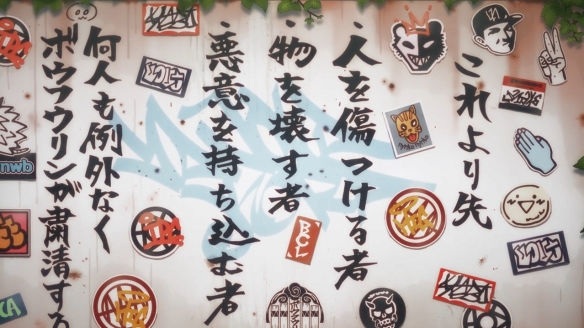 これより先
・人を傷つける者
・物を壊す者
・悪意を持ち込む者
何人も例外なく
ボウフウリンが粛清する
BCL
nwb
CA